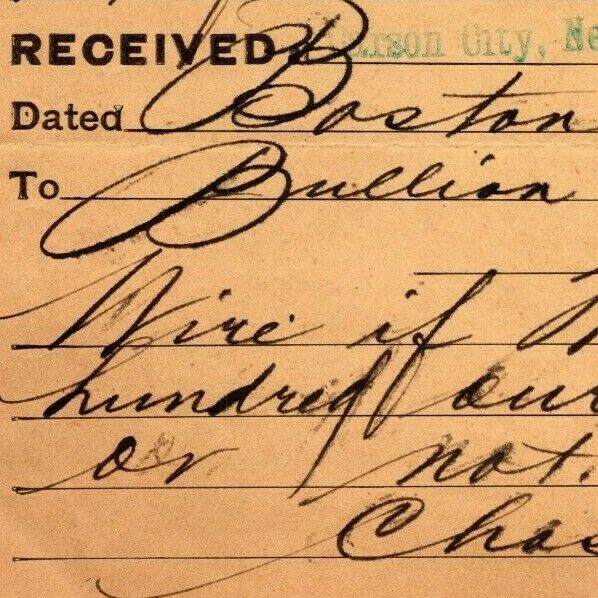 RECEIVED Carson City, Ne
Dated Boston
To Bullion
Wire if
hundred our
or not.
Chas